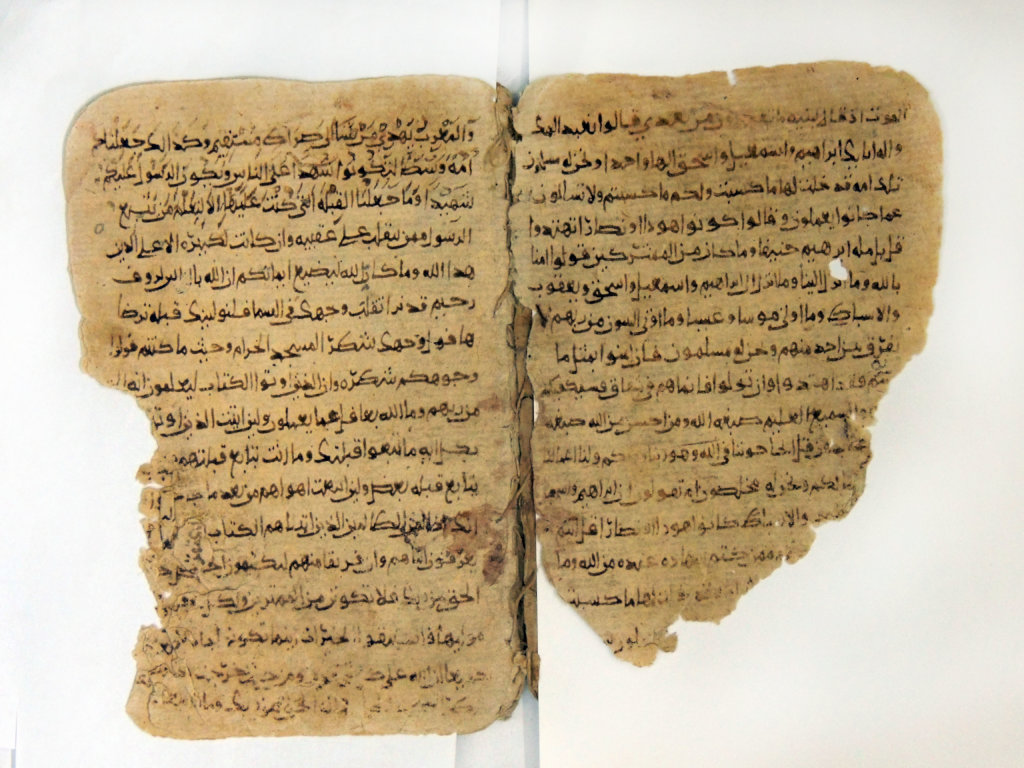 الموت اذ قال لبنيه ما تعبدون من بعدي قالوا نعبد الهك
واله ابائك ابراهيم واسمعيل واسحق الها واحدا ونحن له مسلمون
تلك امه قد خلت لها ما كسبت ولكم ما كسبتم ولا تسالون
عما كانوا يعملون وقالوا كونوا هودا او نصارا تهتدوا
قل بل مله ابرهيم حنيفا وما كان من المشركين قولوا امنا
بالله وما انزل الينا وما انزل الى ابراهيم واسمعيل واسحق ويعقوب
والاسباط وما اوتي موسا وعيسا وما اوتي النبيون من ربهم لا
نفرق بين احد منهم ونحن له مسلمون فان امنوا بمثل ما
اهتدوا وان تولوا فانما هم في شقاق فسيكفيكهم
السميع العليم صبغه الله ومن احسن من الله صبغه
قل اتحاجوننا في الله وهو ربنا وربكم ولنا اعمالنا
ونحن له مخلصون ام تقولون ان ابراهيم واسمعيل
والاسباط كانوا هودا او نصارا قل اانتم
ممن كتم شهاده عنده من الله وما
لها ما كسبت
والمغرب يهدي من يشا الى صراط مستقيم وكذلك جعلناكم
امة وسطا لتكونوا شهدا على الناس ويكون الرسول عليكم
شهيدا وما جعلنا القبلة التي كنت عليها الا لنعلم من يتبع
الرسول ممن ينقلب على عقبيه وان كانت لكبيره الا على الذين
هدا الله وما كان الله ليضيع ايمانكم ان الله بالناس لروف
رحيم قد نرا تقلب وجهك في السما فلنولينك قبله ترضا
ها فول وجهك شطر المسجد الحرام وحيث ما كنتم فولوا
وجوهكم شطره وان الذين اوتوا الكتاب ليعلمون انه
من ربهم وما الله بغافل عما يعملون ولين اتيت الذين اوتوا
بكل ايه ما تبعوا قبلتك وما انت بتابع قبلتهم
بتابع قبله بعض ولين اتبعت اهواهم من بعد ما جاك
الذين اتيناهم الكتاب
يعرفون ابناهم وان فريقا منهم ليكتمون الحق
الحق من ربك فلا تكونن من الممترين ولكل
موليها فاستبقوا الخيرات اينما تكونوا
جميعا ان الله على كل شي قدير ومن حيث خرجت
للحق من ربك وما الله